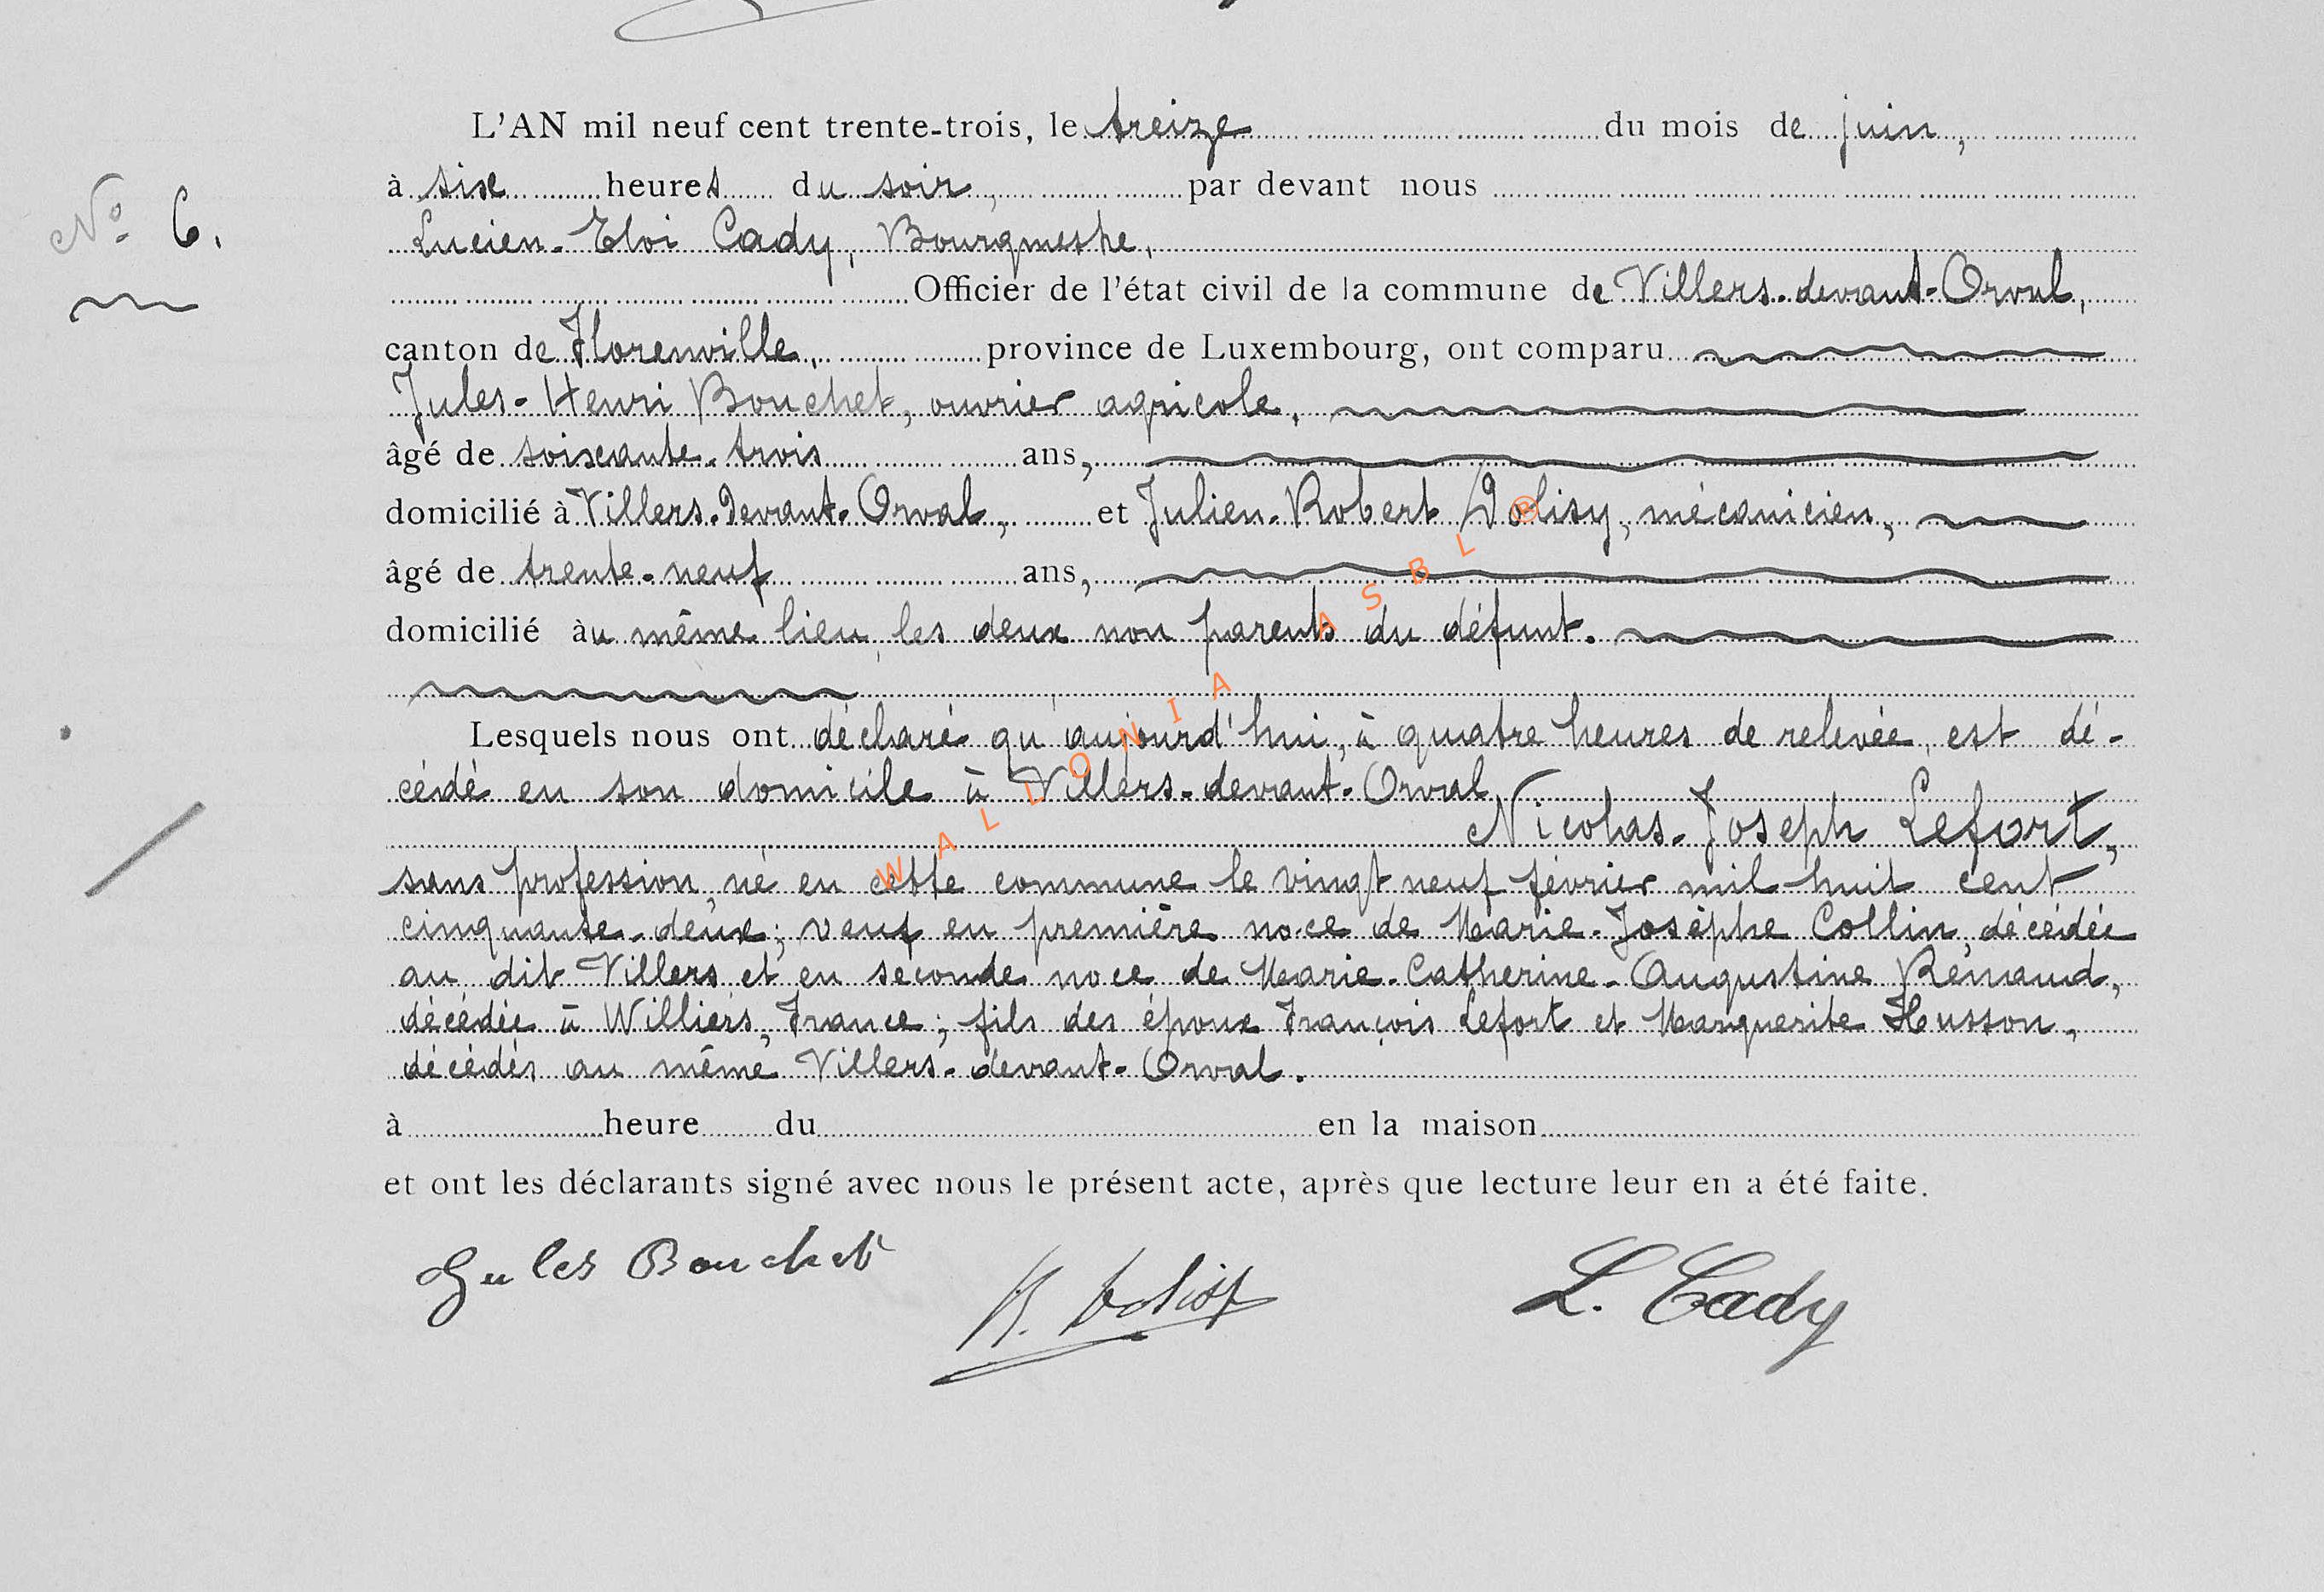 L'AN mil neuf cent trente-trois, le treize du mois de juin,
à six heures du soir, par devant nous
N° 6.
Lucien-Eloi Cady, Bourgmestre,
Officier de l'état civil de la commune de Villers-devant-Orval,
canton de Florenville, province de Luxembourg, ont comparu
Jules-Henri Bouchet, ouvrier agricole,
âgé de soixante-trois ans,
domicilié à Villers-devant-Orval, et Julien-Robert Dolisy, mécanicien,
âgé de trente-neuf ans,
domicilié àu même lieu, les deux non parents du défunt.
Lesquels nous ont déclaré qu'aujourd'hui, à quatre heures de relevée, est dé-
cédé en son domicile à Villers-devant-Orval
Nicolas-Joseph Lefort,
sans profession, né en cette commune le vingt neuf février mil huit cent
cinquante-deux; veuf en première noce de Marie-Josèphe Collin, décédée
au dit Villers et en seconde noce de Marie-Catherine-Augustine Renaud,
décédée à Williers, France; fils des époux François Lefort et Marguerite Husson,
décédés au même Villers-devant-Orval.
à heure du en la maison
et ont les déclarants signé avec nous le présent acte, après que lecture leur en a été faite.
Jules Bouchet
R. L. Cady
WALLONIA ASBL ®